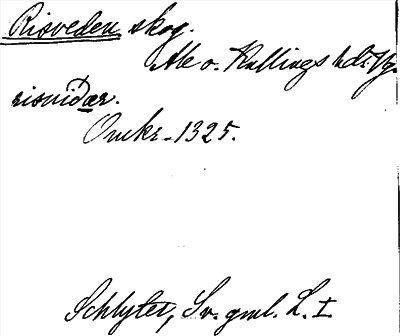 Risveden, skog.
Ale o. Kullings hd: Vg.
risviðær.
Omkr. 1325.
Schlyter, Sv. gml. L. I